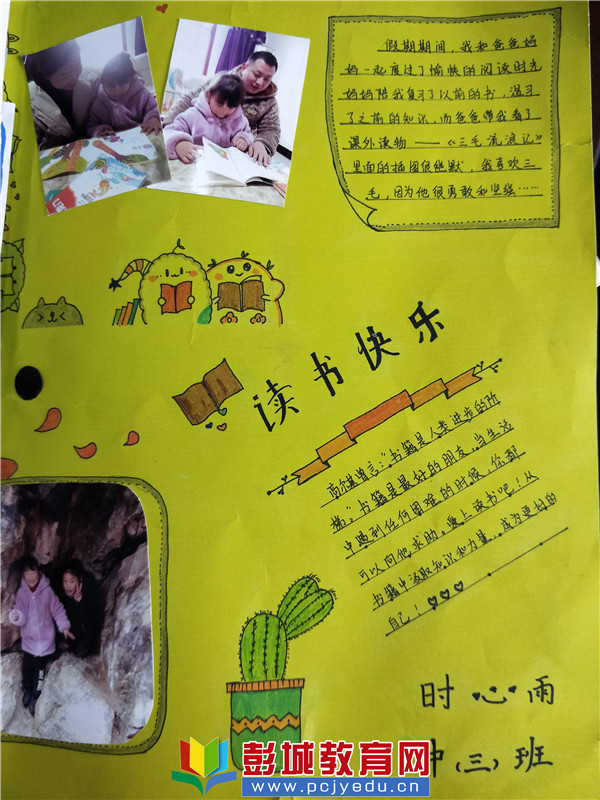 假期期间，我和爸爸妈
妈一起度过了愉快的阅读时光
妈妈陪我复习了以前的书，温习
了之前的知识，而爸爸带我看了
课外读物——《三毛流浪记》
里面的插图很幽默，我喜欢三
毛，因为他很勇敢和坚强……
读书快乐
高尔基曾言："书籍是人类进步的阶
梯。"书籍是最好的朋友，当生活
中遇到任何困难的时候，你都
可以向他求助。爱上读书吧！从
书籍中汲取知识和力量，成为更好的
自己！
时心雨
中（三）班
彭城教育网
www.pcjyedu.cn